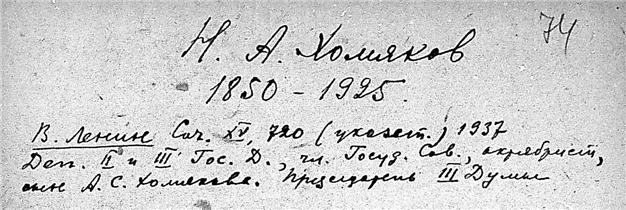 74
Н. А. Хомяков
1850 – 1925.
В. Ленин Соч. XV, 720 (указат.) 1937
Деп. II и III Гос. Д., чл. Госуд. Сов., октябрист,
сын А. С. Хомякова. Председатель III Думы